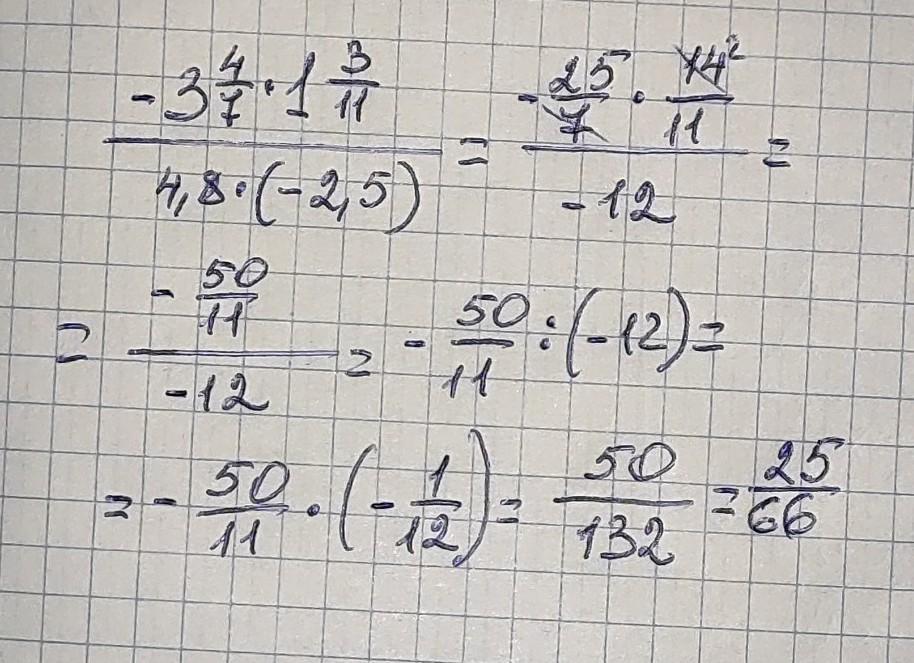 (-3 4/7 · 1 3/11) / (4,8 · (-2,5)) = (-25/7 · 14²/11) / (-12) =
= (-50/11) / (-12) = -50/11 : (-12) =
= -50/11 · (-1/12) = 50/132 = 25/66